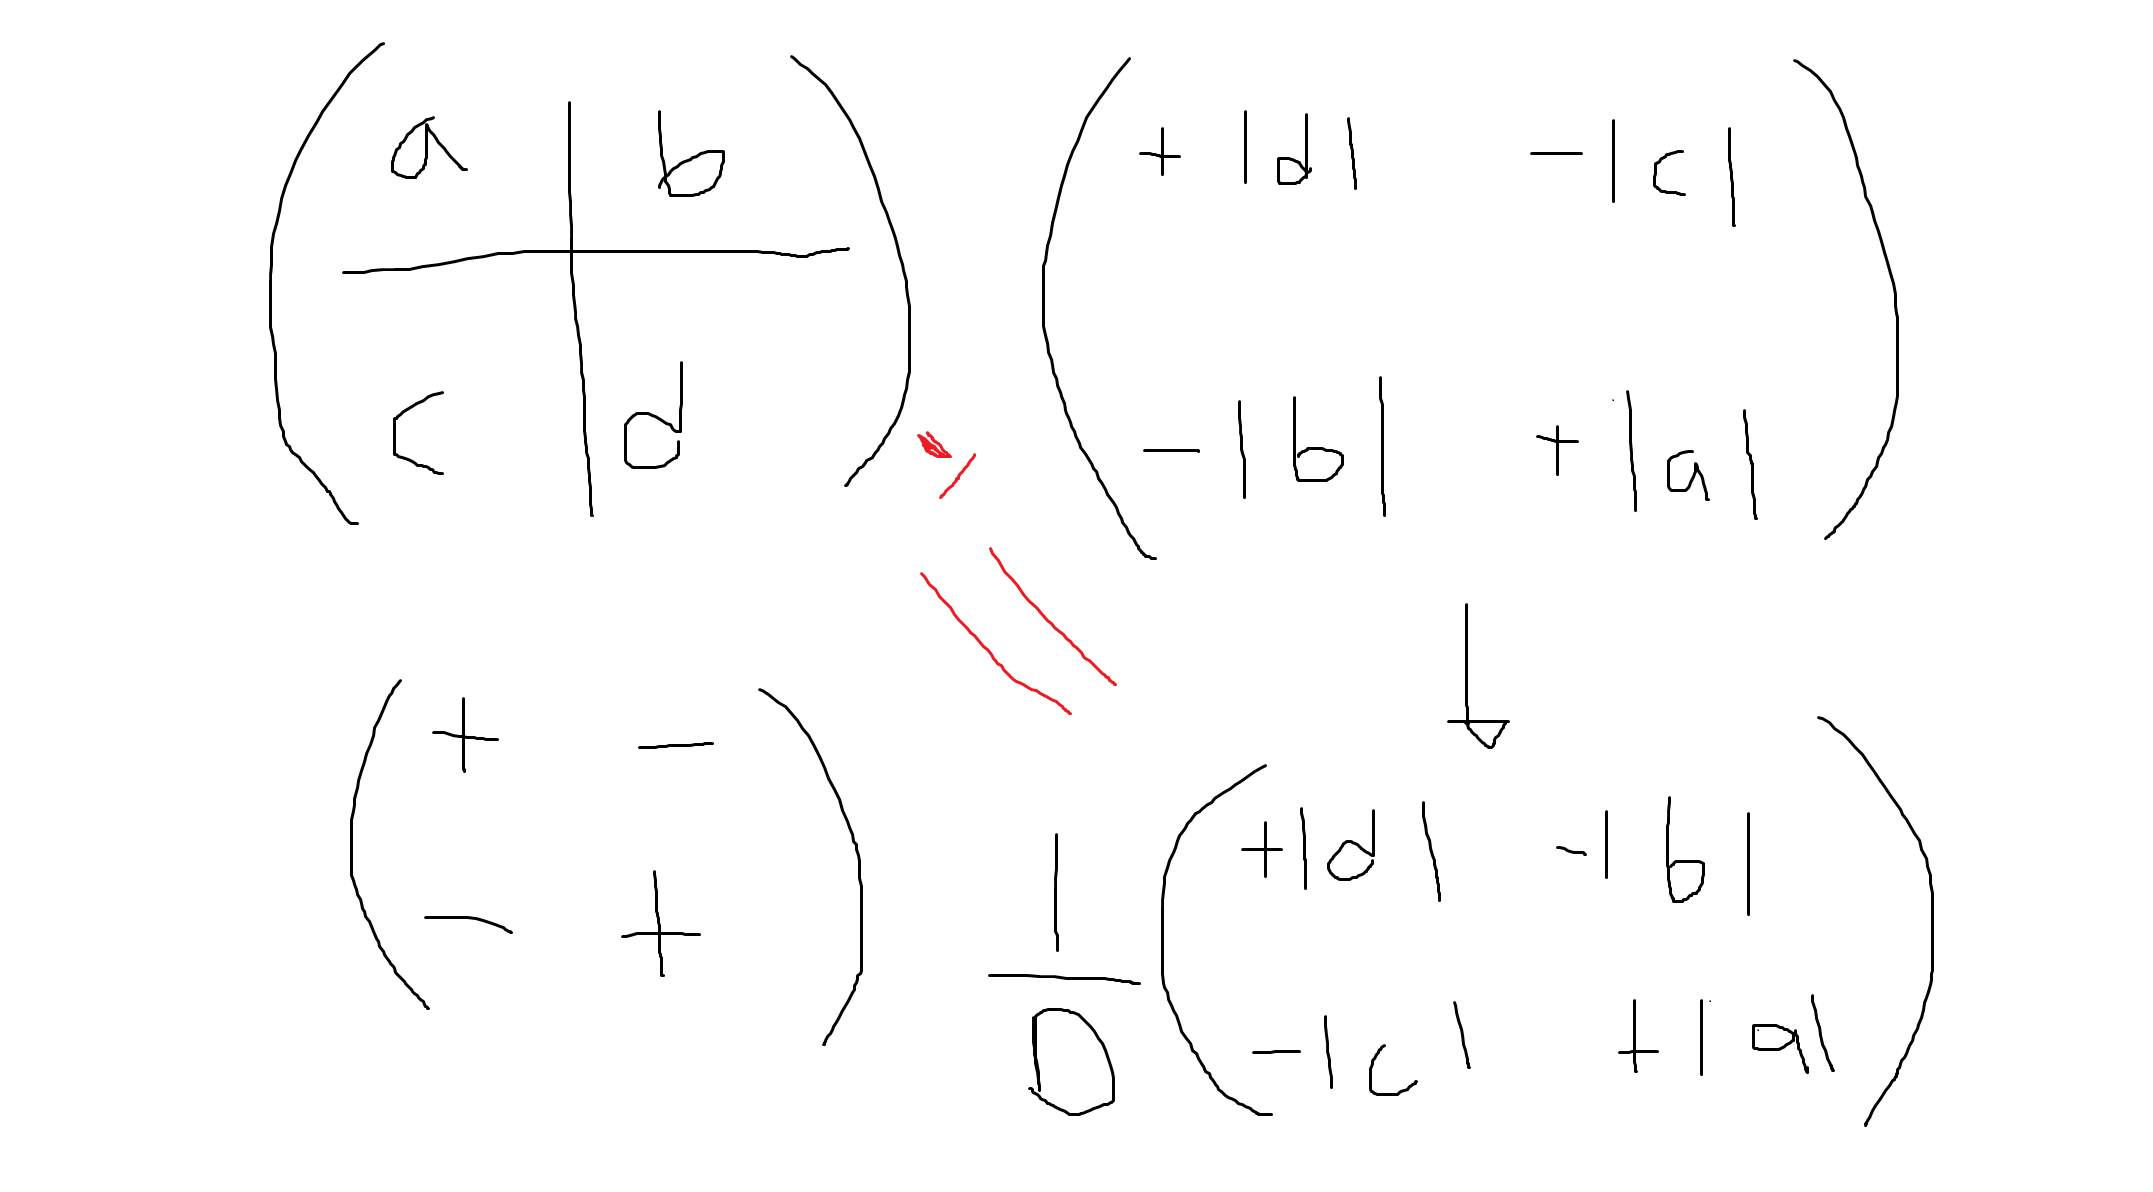 a b
c d
+|d| -|c|
-|b| +|a|
-1
=
+ -
- +
1
D
+|d| -|b|
-|c| +|a|